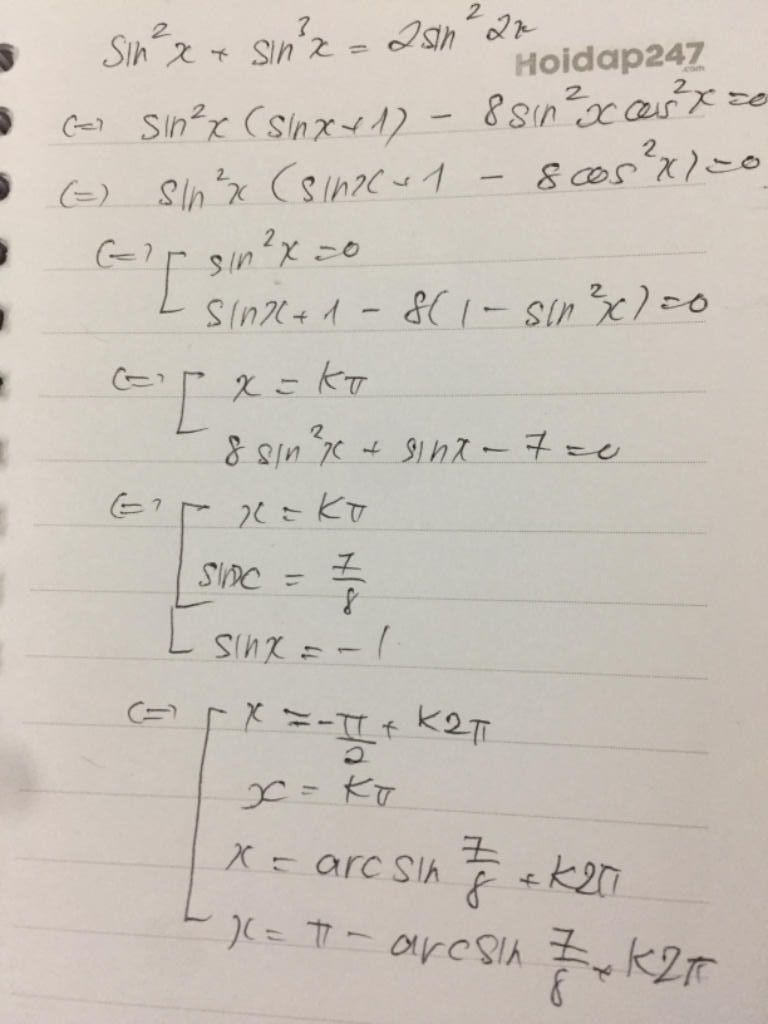 sin²x + sin³x = 2sin²2x
Hoidap247
.com
(=) sin²x (sinx+1) - 8sin²x cos²x = 0
(=) sin²x (sinx+1 - 8cos²x) = 0
(=) [ sin²x = 0
sinx + 1 - 8(1 - sin²x) = 0
(=) [ x = kπ
8sin²x + sinx - 7 = 0
(=) [ x = kπ
sinx = 7/8
sinx = -1
(=) [ x = -π/2 + k2π
x = kπ
x = arcsin 7/8 + k2π
x = π - arcsin 7/8 + k2π